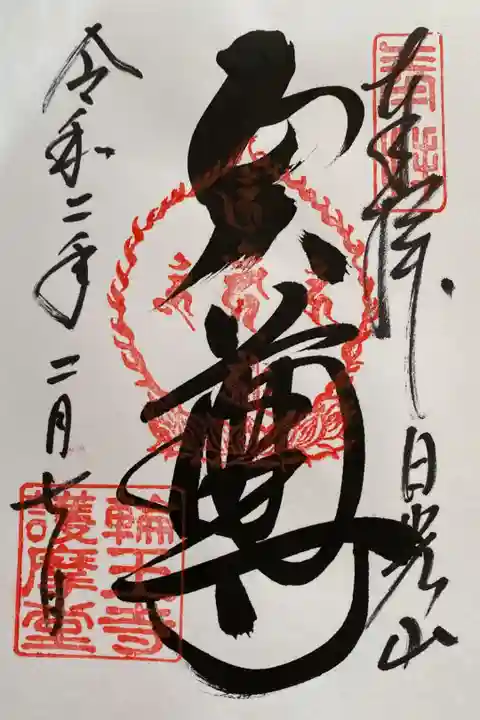 奉拝
日光山
五大尊
令和二年二月七日
輪王寺
護摩堂